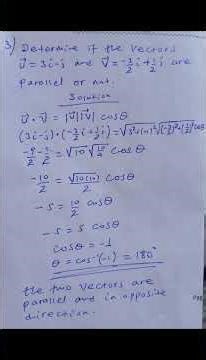 3) Determine if the vectors
u⃗ = 3i-j and v⃗ = -3/2 i + 1/2 j are
parallel or not.
Solution
u⃗ · v⃗ = |u⃗||v⃗| cosθ
(3i-j)·(-3/2 i + 1/2 j) = √(3²+(-1)²) √((-3/2)²+(1/2)²) cosθ
-9/2 - 1/2 = √10 √(10/4) cosθ
-10/2 = √(10(10))/2 cosθ
-5 = 10/2 cosθ
-5 = 5 cosθ
cosθ = -1
θ = cos⁻¹(-1) = 180°
the two vectors are
parallel and in opposite
direction.